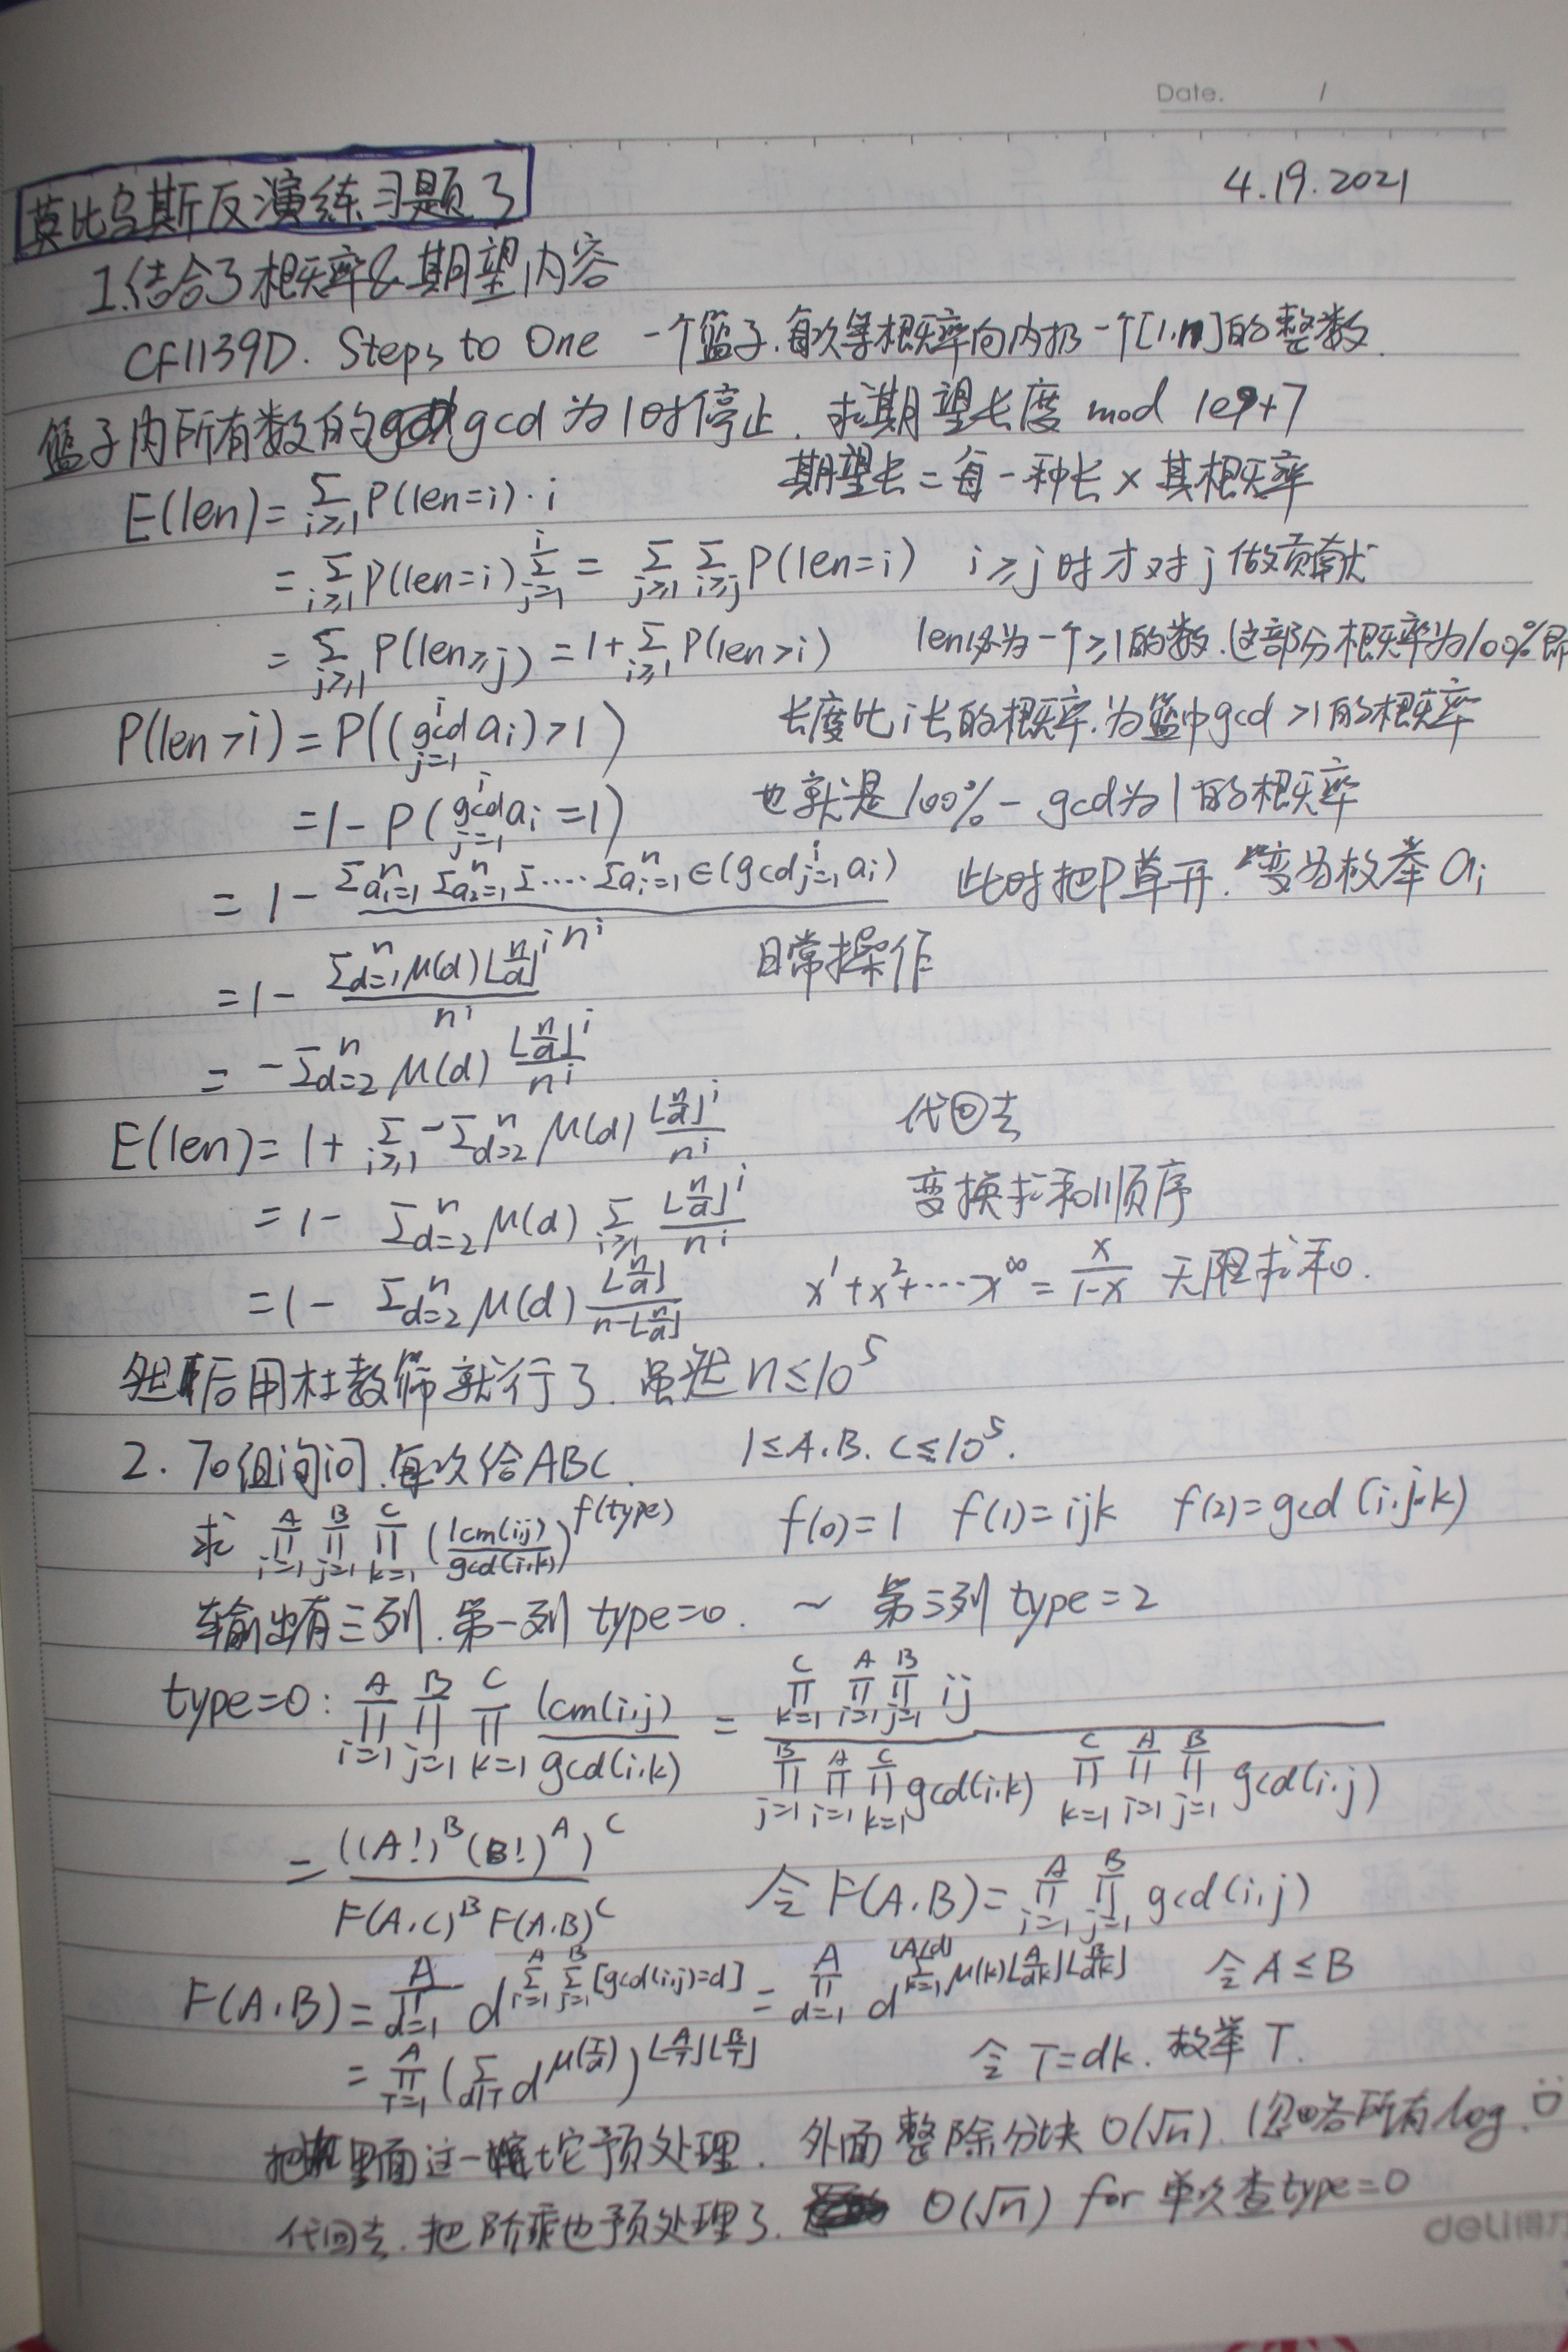 Date. /
4.19.2021
莫比乌斯反演练习题3
1.结合了概率&期望内容
CF1139D. Steps to One 一个篮子.每次等概率向内扔一个[1,n]的整数.
篮子内所有数的gcd为1时停止. 求期望长度 mod 1e9+7
E(len)=∑_{i≥1}P(len=i)·i 期望长=每一种长×其概率
=∑_{i≥1}P(len=i)∑_{j=1}^{i} = ∑_{j≥1}∑_{i≥j}P(len=i) i≥j时才对j做贡献
=∑_{j≥1}P(len≥j)=1+∑_{i≥1}P(len>i) len必为一个≥1的数.这部分概率为100%即
P(len>i)=P((gcd_{j=1}^{i} a_i)>1) 长度比i长的概率.为篮中gcd>1的概率
=1-P(gcd_{j=1}^{i} a_i=1) 也就是100%-gcd为1的概率
=1-∑a_1=1^n ∑a_2=1^n ∑····∑a_i=1^n ∈(gcd_{j=1}^{i} a_i) 此时把P草开.变为枚举a_i
n^i
=1-\frac{∑_{d=1}^{n}μ(d)⌊\frac{n}{d}⌋^i}{n^i} 日常操作
=-∑_{d=2}^{n}μ(d)\frac{⌊\frac{n}{d}⌋^i}{n^i}
E(len)=1+∑_{i≥1}-∑_{d=2}^{n}μ(d)\frac{⌊\frac{n}{d}⌋^i}{n^i} 代回去
=1-∑_{d=2}^{n}μ(d)∑_{i≥1}\frac{⌊\frac{n}{d}⌋^i}{n^i} 变换求和顺序
=1-∑_{d=2}^{n}μ(d)\frac{⌊\frac{n}{d}⌋}{n-⌊\frac{n}{d}⌋} x^1+x^2+····x^∞=\frac{x}{1-x} 无限求和.
然后用杜教筛就行了.虽然n≤10^5
2. 70组询问.每次给ABC. 1≤A.B.C≤10^5.
求 ∏_{i=1}^{A}∏_{j=1}^{B}∏_{k=1}^{C}(\frac{lcm(i,j)}{gcd(i,k)})^{f(type)} f(0)=1 f(1)=ijk f(2)=gcd(i.j.k)
输出有三列.第一列type=0. ~ 第三列type=2
type=0: ∏_{i=1}^{A}∏_{j=1}^{B}∏_{k=1}^{C}\frac{lcm(i,j)}{gcd(i,k)} = \frac{∏_{k=1}^{C}∏_{i=1}^{A}∏_{j=1}^{B} ij}{∏_{j=1}^{B}∏_{i=1}^{A}∏_{k=1}^{C}gcd(i,k) ∏_{k=1}^{C}∏_{i=1}^{A}∏_{j=1}^{B}gcd(i,j)}
=\frac{((A!)^B(B!)^A)^C}{F(A,C)^B F(A,B)^C} 令F(A,B)=∏_{i=1}^{A}∏_{j=1}^{B}gcd(i,j)
F(A,B)=∏_{d=1}^{A}d^{∑_{i=1}^{A}∑_{j=1}^{B}[gcd(i,j)=d]}=∏_{d=1}^{A}d^{∑_{k=1}^{⌊A/d⌋}μ(k)⌊\frac{A}{dk}⌋⌊\frac{B}{dk}⌋} 令A≤B
=∏_{T=1}^{A}(∑_{d|T}d^{μ(\frac{T}{d})})^{⌊\frac{A}{T}⌋⌊\frac{B}{T}⌋} 令T=dk.枚举T.
把里面这一坨预处理. 外面整除分块O(√n).(忽略所有log.
代回去.把阶乘也预处理了. O(√n) for 单次查type=0
deli得力